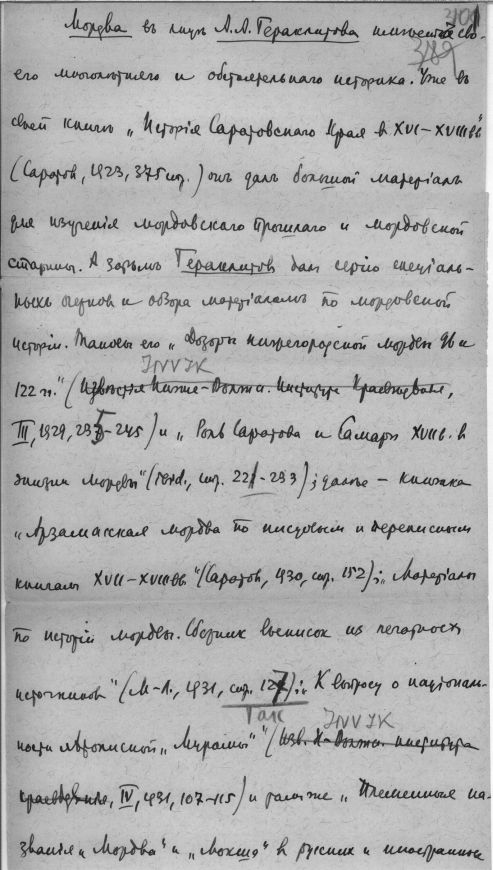 3101
3189
Мордва въ лицѣ А.А. Гераклитова имѣетъ сво-
его многолѣтняго и обстоятельнаго историка. Уже въ
своей книгѣ „Исторія Саратовскаго Края в XVI–XVIIIвв"
(Саратов, 1923, 375 стр.) онъ далъ большой матеріалъ
для изученія мордовскаго прошлаго и мордовской
старины. А затѣмъ Гераклитов дал серію спеціаль-
ныхъ очерков и обзора матеріаламъ по мордовской
исторіи. Таковы его „Дозоры нижегородской мордвы
122 гг." (Извѣстія Нижне-Волжск. Института Краевѣденія,
INVIK
III, 1929, 235-245) и „Роль Саратова и Самары XVIIв. в
жизни мордвы" (ibid., стр. 221-233); далѣе – книжка
„Арзамасская мордва по писцовым и переписным
книгам XVII–XVIIIвв" (Саратов, 1930, стр. 152); „Матеріалы
по исторіи мордвы. Сборник выписок из печатныхъ
источников" (М-Л., 1931, стр. 127); „К вопросу о націоналъ-
Так
INVIK
ности лѣтописной „Мурамы"" (Изв. Н-Волжск. института
краевѣденія, IV, 1931, 107-115) и там же „Племенныя на-
званія „Мордва" и „Мокша" в русских и иностранных